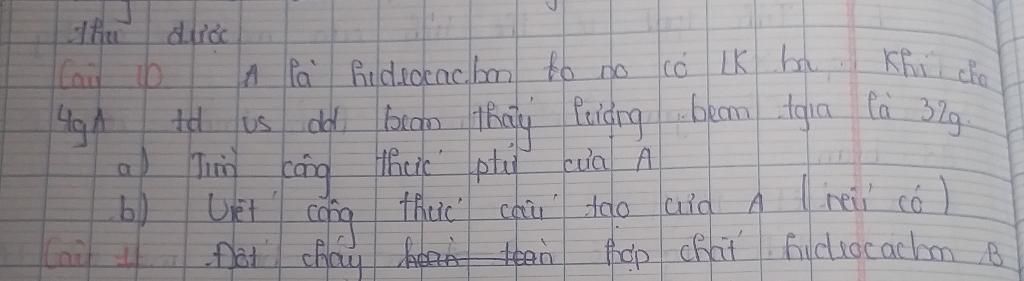 thu được
Câu 10 A là hidrocacbon ko no có LK ba. Khi cho
4g A td vs dd brom thấy lượng brom tgia là 32g.
a) Tìm công thức ptử của A
b) Viết công thức cấu tạo của A (nếu có)
Câu 11 Đốt cháy hoàn toàn hợp chất hidrocacbon B